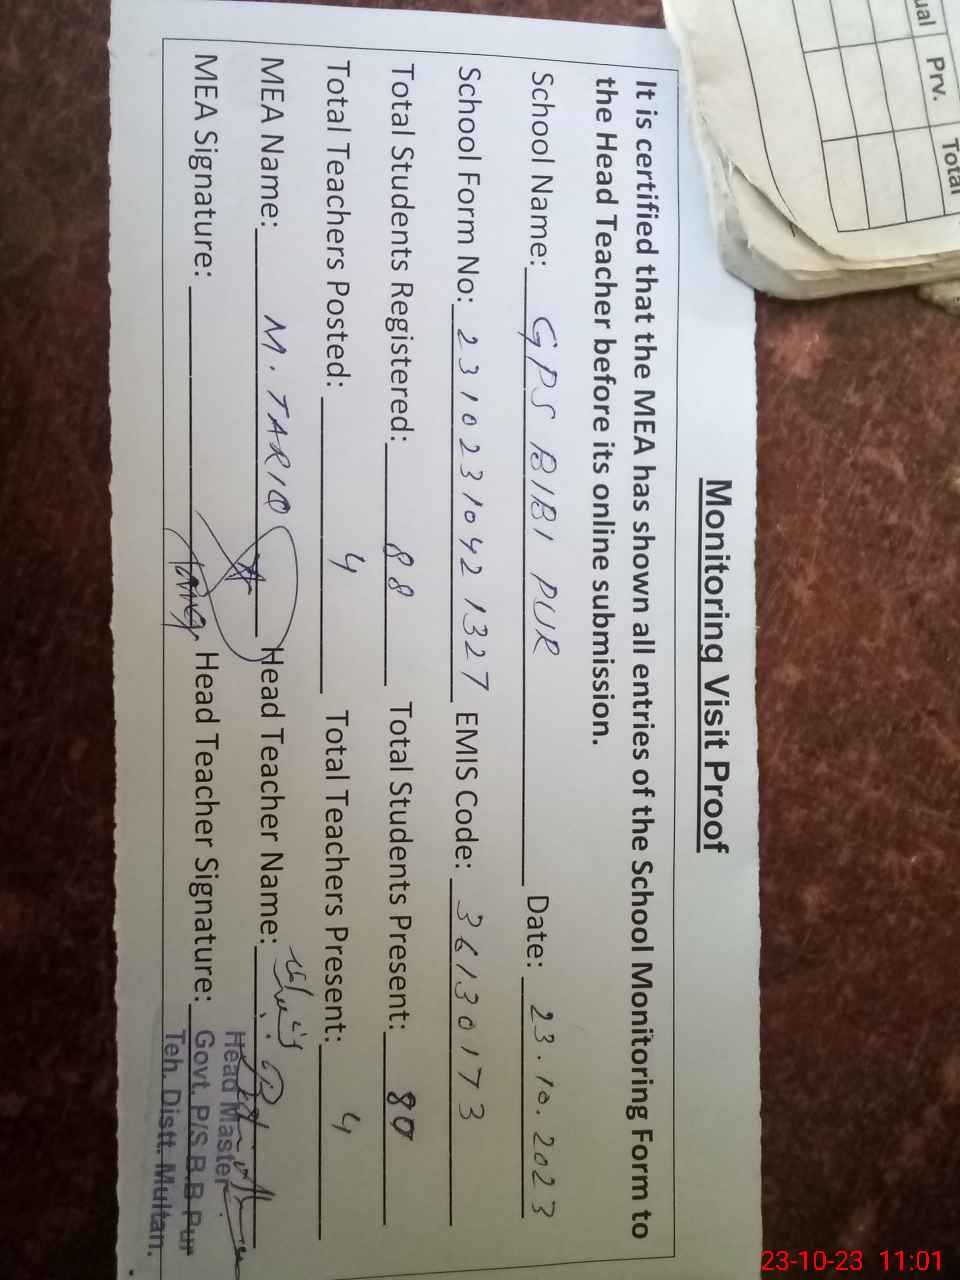 Monitoring Visit Proof
It is certified that the MEA has shown all entries of the School Monitoring Form to
the Head Teacher before its online submission.
School Name: GPS BIBI PUR Date: 23.10.2023
School Form No: 23102310421327 EMIS Code: 36130173
Total Students Registered: 88 Total Students Present: 80
Total Teachers Posted: 4 Total Teachers Present: 4
MEA Name: M. TARIQ Head Teacher Name:
MEA Signature: Head Teacher Signature:
Head Master
Govt. P/S B.B Pur
Teh. Distt. Multan.
ual Prv. Total
23-10-23 11:01